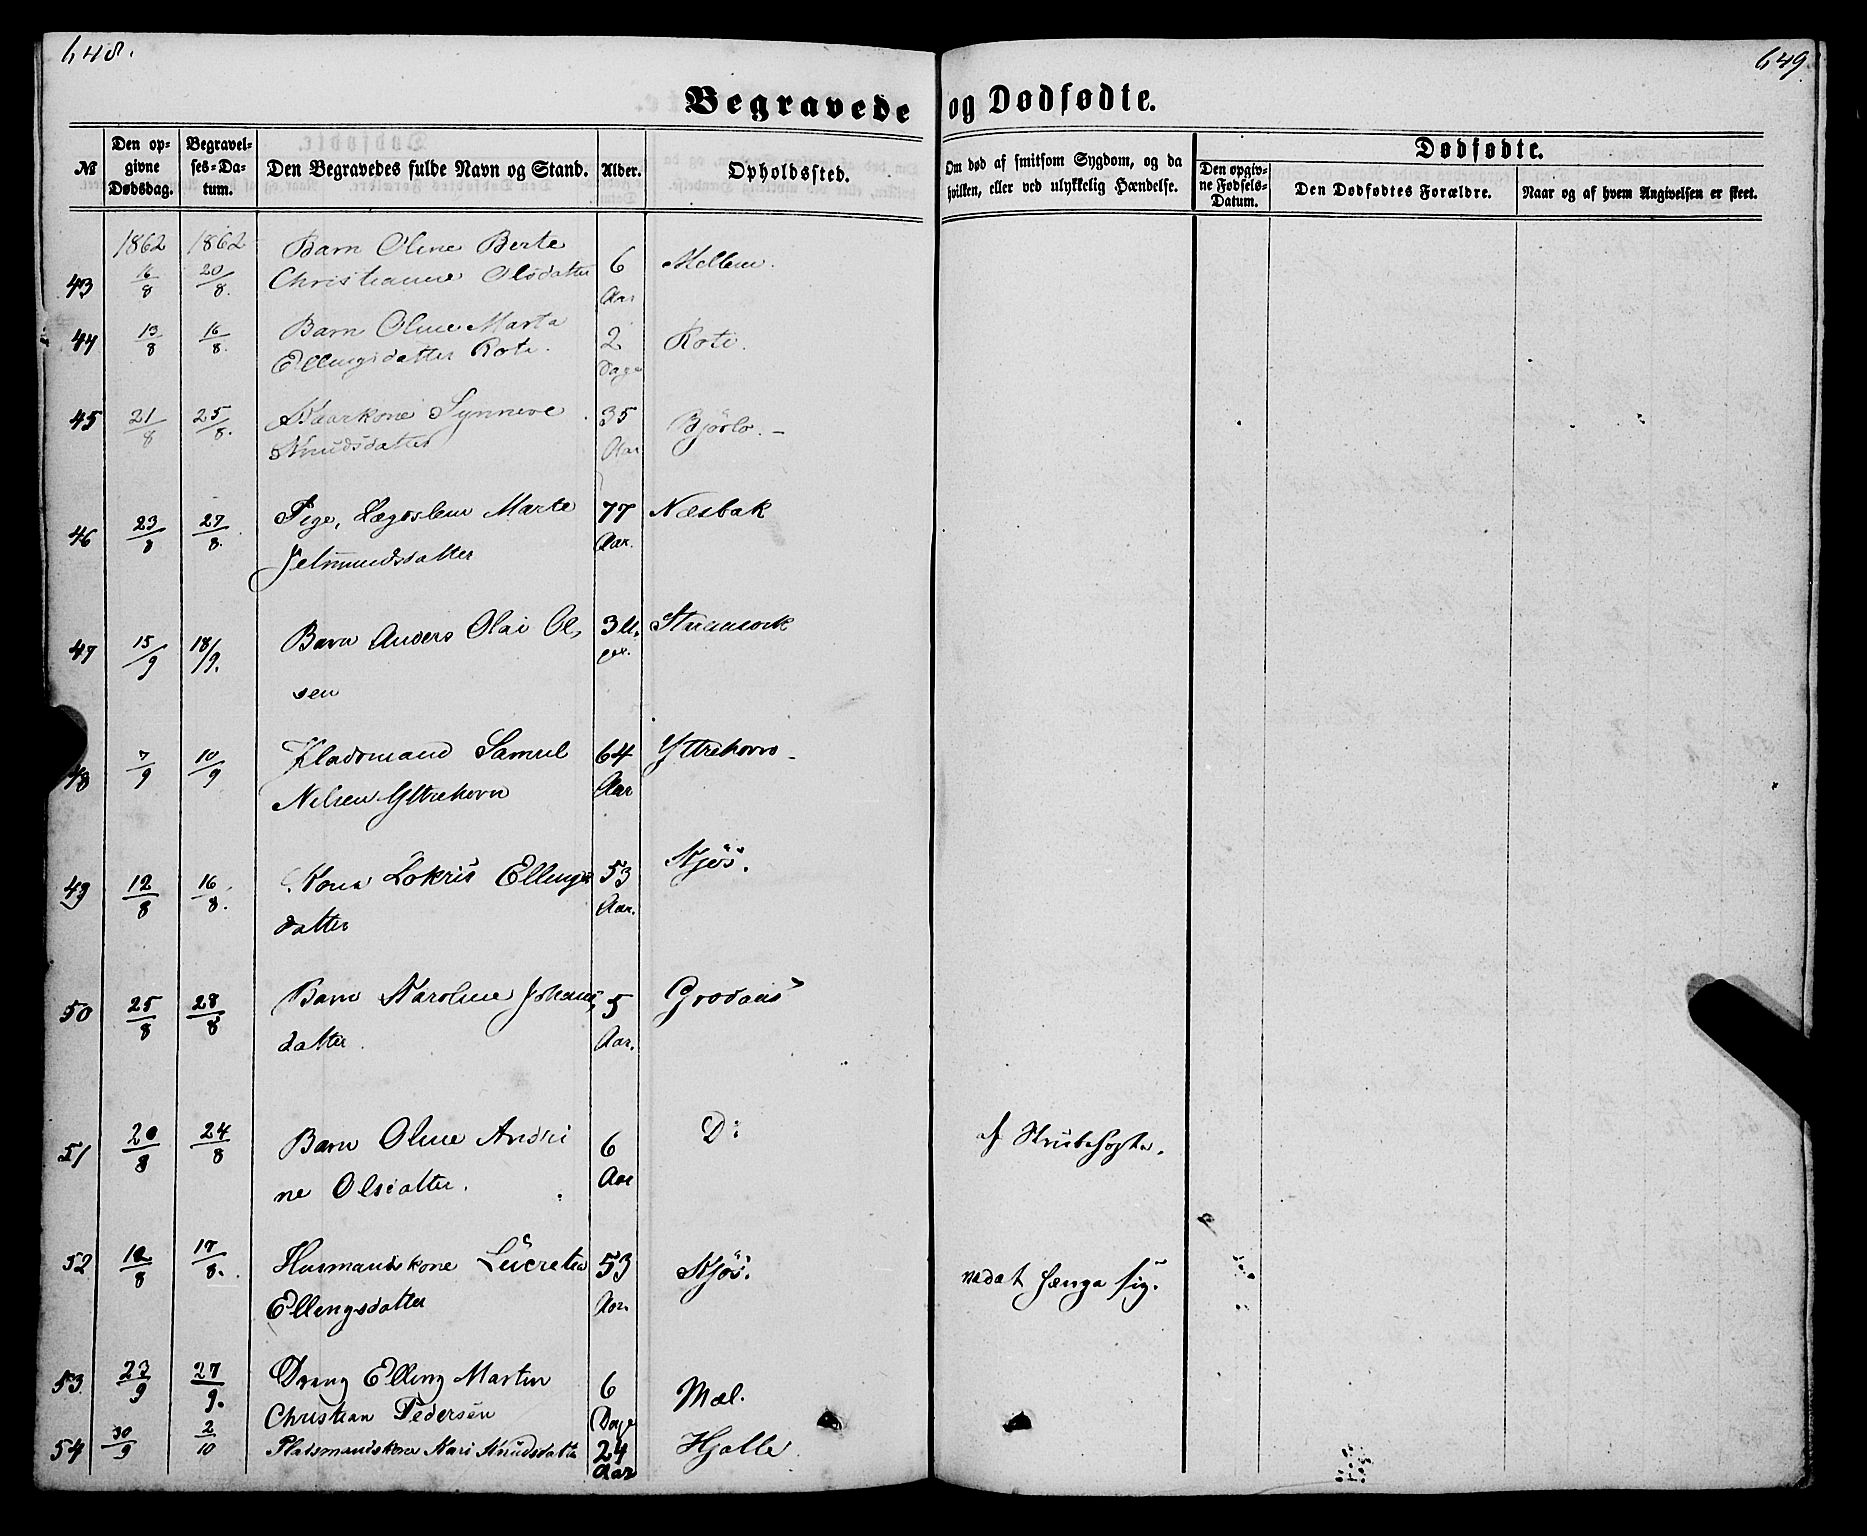 648.
649.
Begravede og Dødfødte.
№
Den opgivne Dødsdag.
Begravelses-Datum.
Den Begravedes fulde Navn og Stand.
Alder.
Opholdssted.
Om død af smitsom Sygdom, og da
hvilken, eller ved ulykkelig Hændelse.
Dødfødte.
Den opgivne Fødsels-Datum.
Den Dødfødtes Forældre.
Naar og af hvem Angivelsen er skeet.
1862 1862 Barn Oline Berte
43 16/8 20/8. Christianne Olsdatter 6 Aar Mellem.
44 13/8 16/8. Barn Oline Marta 2 Dage Rote.
Ellingsdatter Rote.
45 21/8 25/8. Kaarkone Synneve 35 Aar Bjørlo. -
Knudsdatter
46 23/8 27/8. Pige, Lægdslem Marte 77 Aar. Næsbak
Jetmundsdatter
47 15/9 18/9. Barn Anders Olai Ol- 3 U-ger.
sen
48 7/9 10/9 Pladsmand Samuel 64 Aar Yttrehorn -
Nilsen Yttrehorn
49 12/8 16/8. Kone Lokris Ellings 53 Aar. Kjøs.
datter
50 25/8 28/8 Barn Karoline Johans 5 Aar. Grodaas
datter.
51 20/8 24/8 Barn Oline Andri 6 Aar D: af Strubehoste.
ne Olsdatter.
52 12/8 17/8. Husmandskone Lucretia 53 Aar. Kjøs. ved at hænge sig.
Ellengsdatter
53 23/9 27/9. Dreng Elling Martin 6 Dage Mæl.
Christian Pedersen
54 30/9 2/10 Pladsmandskone Kari Knudsdatte 24 Aar Hjalle.